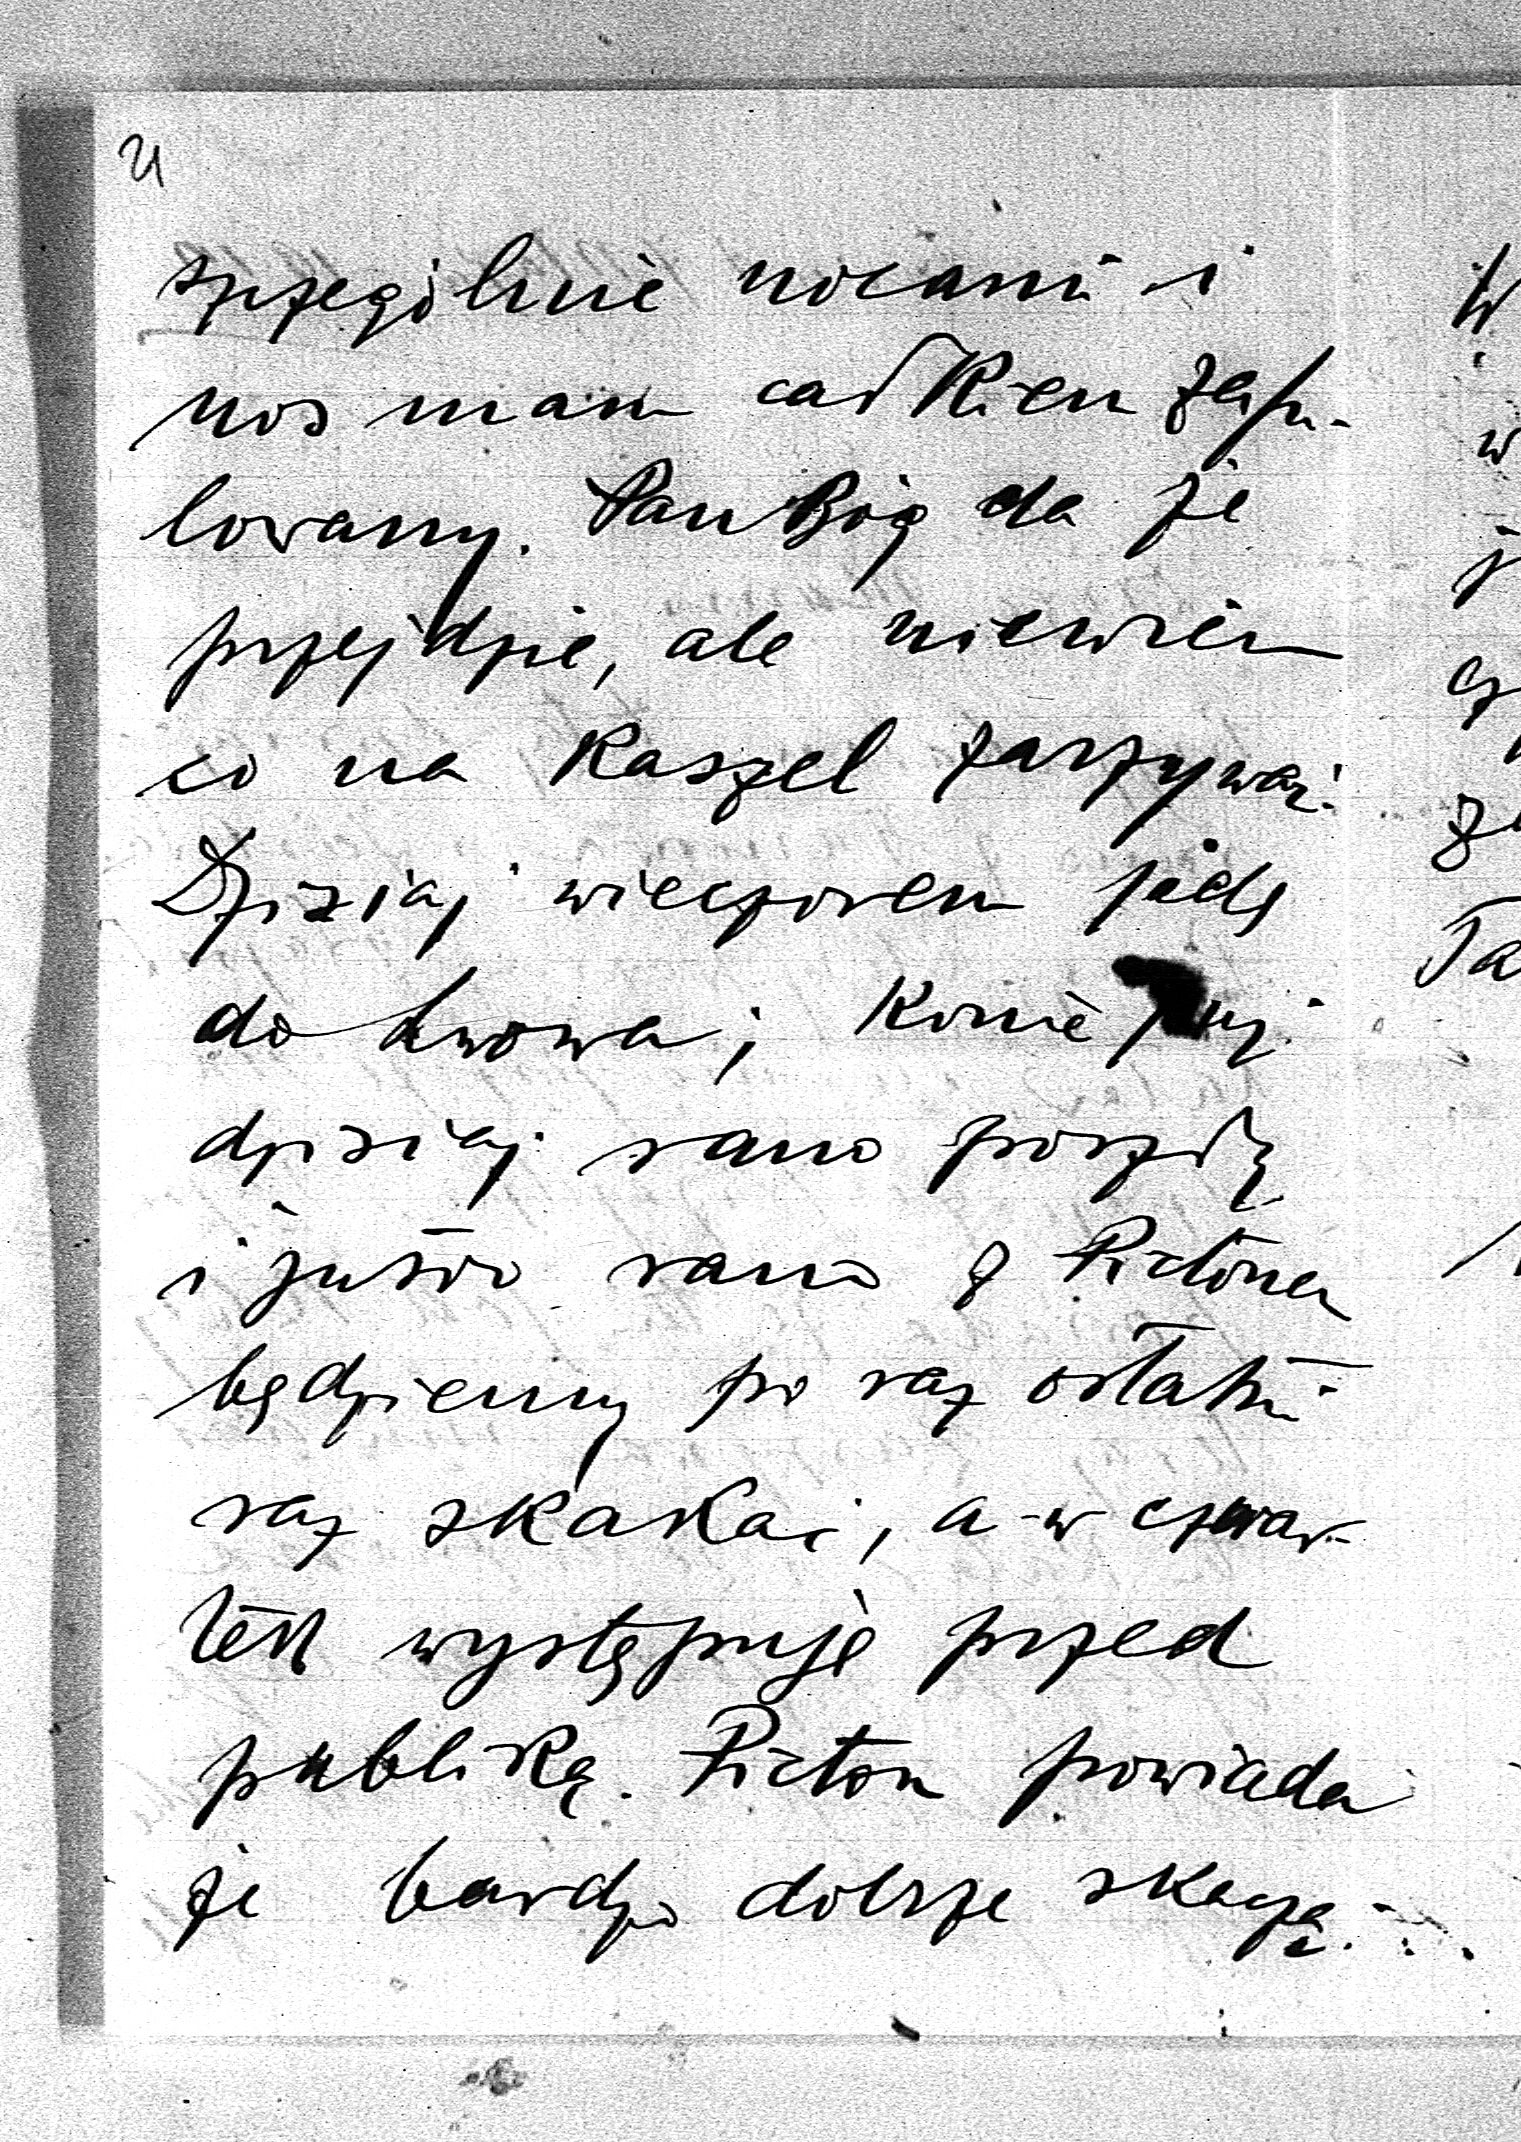 szczególnie nocami i
nos mam całkiem zafu-
lowany. Pan Bóg da że
przejdzie, ale niewiem
co na kaszel zarzywać.
Dzisiaj wieczorem jadę
do Lwowa; konie
dzisiaj rano poszłą
i jutro rano z Picton
będziemy po raz ostatni
raz skakać, a w czwar-
tek występuję przed
publiką. Picton powiada
że bardzo dobrze skaczą...
W
w
j
cz
ze
Ta